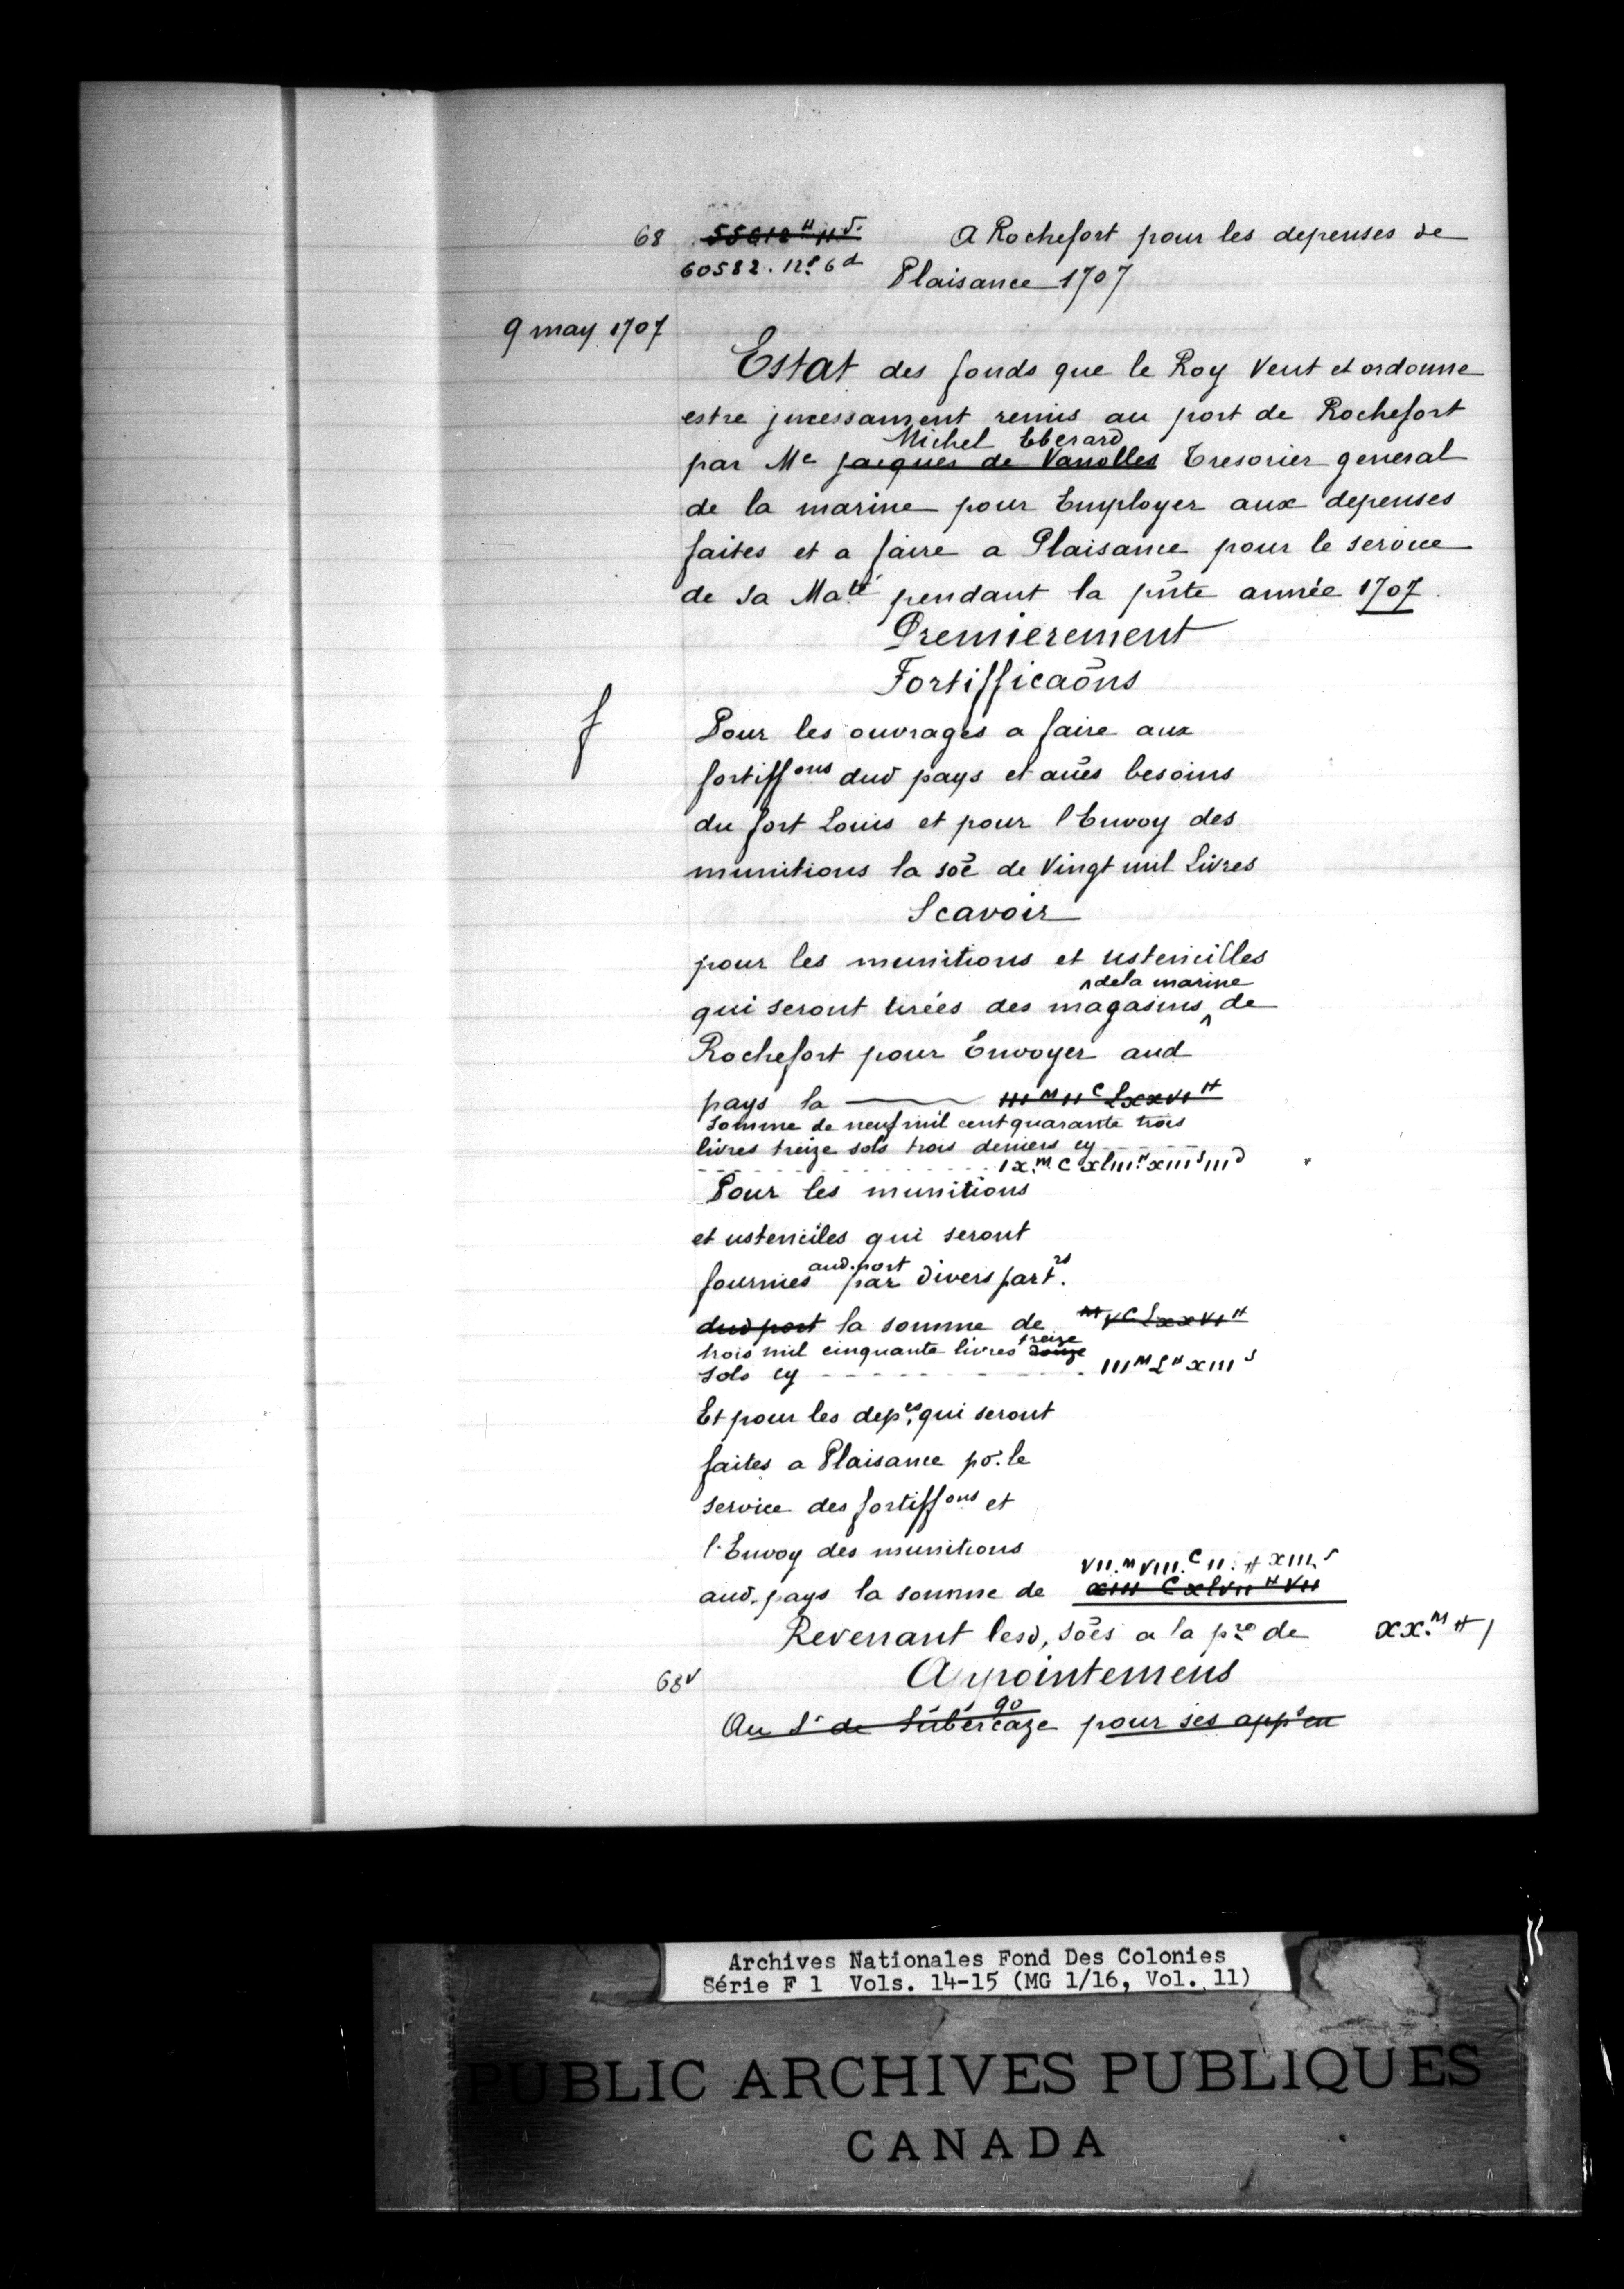 68 55612# 11s. A Rochefort pour les depenses de
60582. 12s. 6d Plaisance 1707
9 may 1707
Estat des fonds que le Roy Veut et ordonne
estre jncessament remis au port de Rochefort
Michel Eberard
par Me jacques de Vanolles Tresorier general
de la marine pour Employer aux depenses
faites et a faire a Plaisance pour le service
de sa Maté pendant la pn̄te année 1707.
Premierement
Fortifficaōns
f Pour les ouvrages a faire aux
fortiffons dud pays et aūes besoins
du fort Louis et pour l'Envoy des
munitions la soē de Vingt mil Livres
Scavoir
pour les munitions et ustencilles
^ de la marine
qui seront tirées des magasins ^ de
Rochefort pour Envoyer aud
pays la IIIM IIC LxxVI#
somme de neuf mil cent quarante trois
livres treize sols trois deniers cy
Ix.M C xlIII# xIIIs IIId
Pour les munitions
et ustenciles qui seront
aud. port
fournies par divers part.rs
dud port la somme de M VC LxxVI#
treize
trois mil cinquante livres douze
sols cy IIIM L# xIIIs
Et pour les depes. qui seront
faites a Plaisance po. le
service des fortiffons et
l'Envoy des munitions
VII.M VIII.C II.# xIIIs
aud. pays la somme de xIII C xlVII# VII
Revenant lesd. soēs a la pre de xx.M#
68v Appointemens
90
Au Sr de Subercaze pour ses apps en
Archives Nationales Fond Des Colonies
Série F 1 Vols. 14-15 (MG 1/16, Vol. 11)
PUBLIC ARCHIVES PUBLIQUES
CANADA